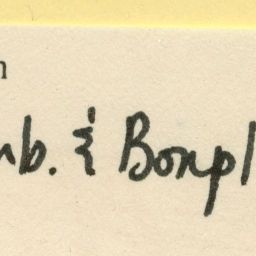 n
mb. & Bonpl